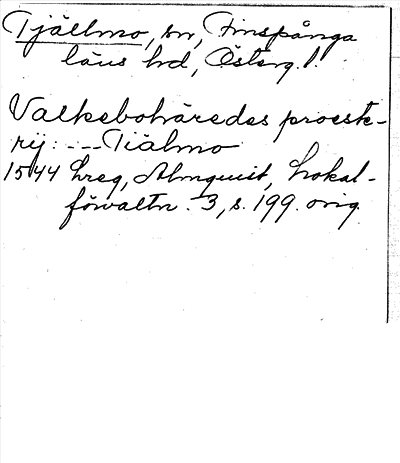 Tjällmo, sn, Finspånga
läns hd, Österg.l.
Valkebohäredes proeste-
rij: --- Tiälmo
1544 hreg, Almquist, Lokal-
förvaltn. 3, s. 199. orig.